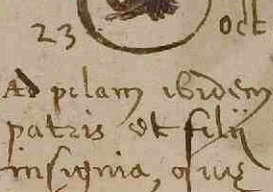 23 oct
Ad pilam ibidem
patris et filij
insignia, quę